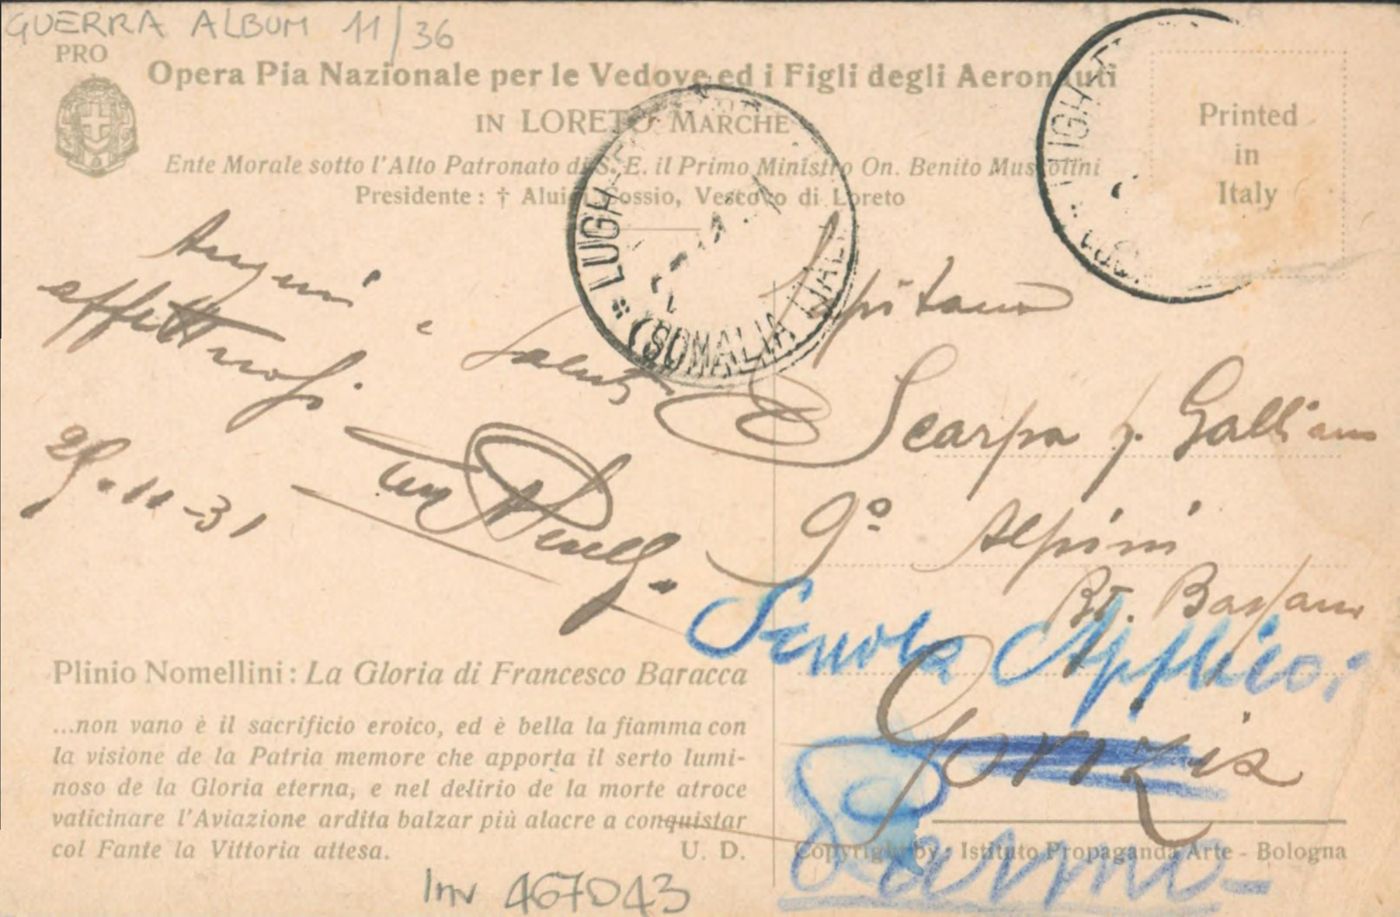 GUERRA ALBUM 11/36
PRO
Opera Pia Nazionale per le Vedove ed i Figli degli Aeronauti
IN LORETO MARCHE
Ente Morale sotto l'Alto Patronato di S. E. il Primo Ministro On. Benito Mussolini
Presidente: † Aluigi Cossio, Vescovo di Loreto
Printed
in
Italy
LUGH
(SOMALIA ITAL
LUGH
Auguri
affettuosi e saluti
29-11-31
Capitano
Scarpa f. Galliano
9º Alpini
Bt. Bassano
Scuola Applicoi
Gorizia
Parma
Plinio Nomellini: La Gloria di Francesco Baracca
...non vano è il sacrificio eroico, ed è bella la fiamma con
la visione de la Patria memore che apporta il serto lumi-
noso de la Gloria eterna, e nel delirio de la morte atroce
vaticinare l'Aviazione ardita balzar più alacre a conquistar
col Fante la Vittoria attesa. U. D.
Copyright by: Istituto Propaganda Arte - Bologna
Inv 467043